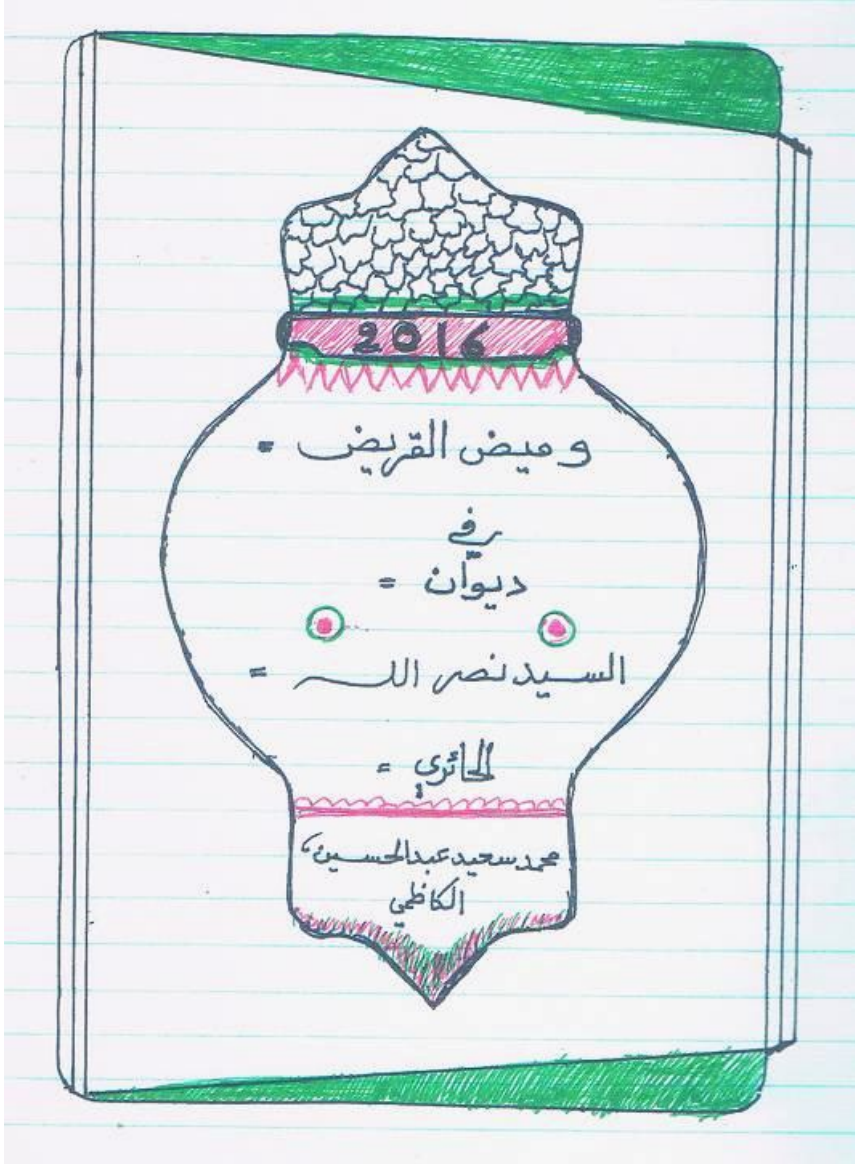 2016
وميض القريض =
في
ديوان =
السيد نصر الله =
الحائري =
محمد سعيد عبدالحسين
الكاظمي